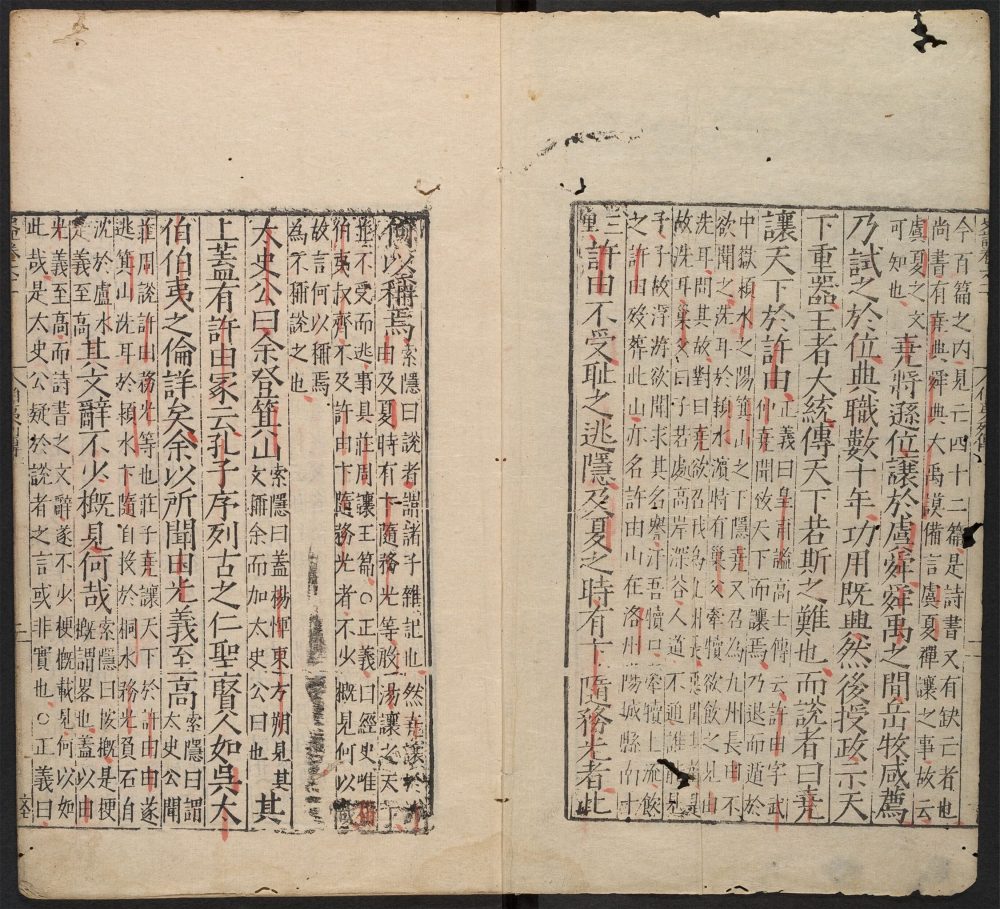 今百篇之内見亡四十二篇是詩書又有缺亡者也
尚書有堯典舜典大禹謨備言虞夏禪讓之事故云
虞夏之文
可知也
堯將遜位讓於虞舜舜禹之間岳牧咸薦
乃試之於位典職數十年功用既興然後授政示天
下重器王者大統傳天下若斯之難也而說者曰堯
讓天下於許由
正義曰皇甫謐高士傳云許由字武
仲堯聞致天下而讓焉乃退而遁於
中嶽潁水之陽箕山之下隱堯又召為九州長由不
欲聞之洗耳於潁水濱時有巢父牽犢欲飲之見由
洗耳問其故對曰堯欲召我為九州長惡聞其聲是
故洗耳巢父曰子若處高岸深谷人道不通誰能見
子子故浮游欲聞求其名譽汙吾犢口牽犢上流飲
之許由歿葬此山亦名許由山在洛州陽城縣南十
三
里
許由不受耻之逃隱及夏之時有卞隨務光者此
何以稱焉
索隱曰說者謂諸子雜記也然堯讓於
許由及夏時有卞隨務光等殷湯讓之天下
並不受而逃事具莊周讓王篇○正義曰經史唯
伯夷叔齊不及許由卞隨務光者不少概見何以
故言何以稱焉
為不稱說之也
太史公曰余登箕山
索隱曰蓋楊惲東方朔見其
文稱余而加太史公曰也
其
上蓋有許由冢云孔子序列古之仁聖賢人如吳太
伯伯夷之倫詳矣余以所聞由光義至高
索隱曰謂
太史公聞
莊周說許由務光等也莊子堯讓天下於許由由遂
逃箕山洗耳於潁水卞隨自投於桐水務光負石自
沈於盧水
是義至高
其文辭不少概見何哉
索隱曰按概是梗
概謂畧也蓋以由
光義至高而詩書之文辭遂不少梗概載見何以如
此哉是太史公疑於說者之言或非實也○正義曰